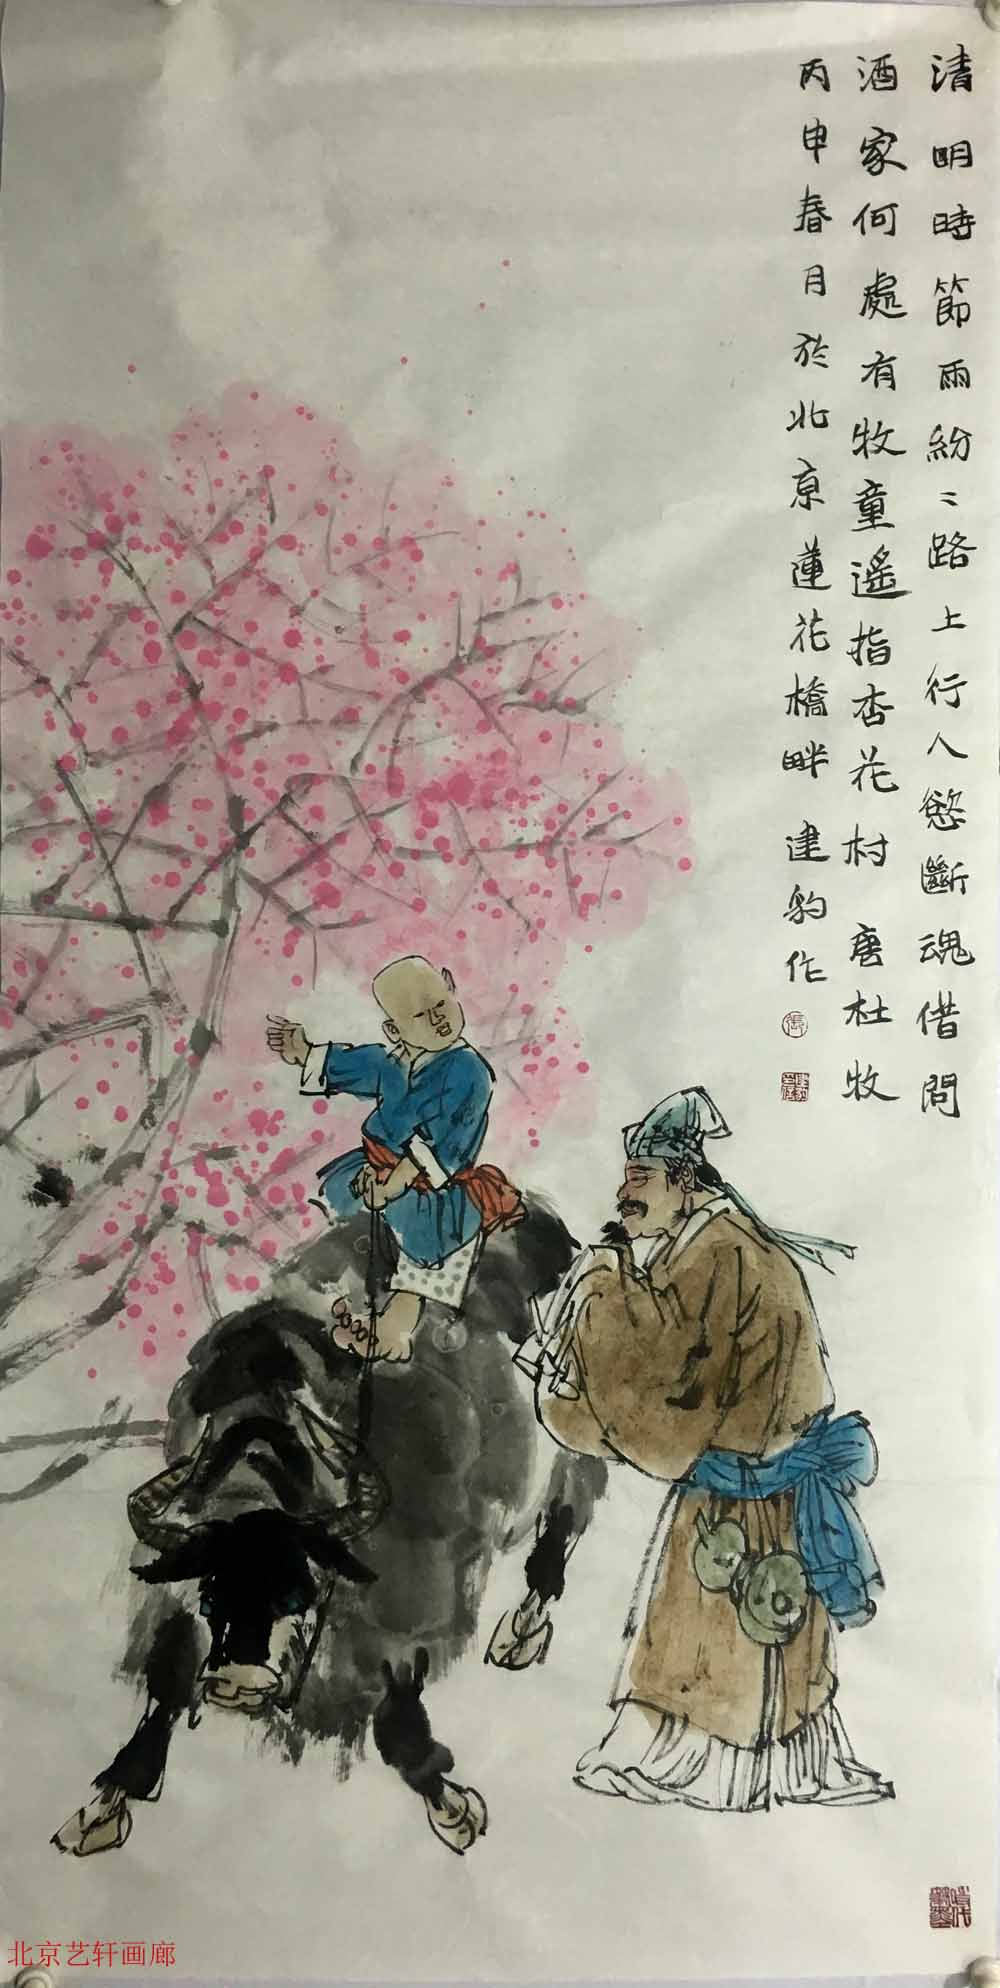 清明時節雨紛〻路上行人慾斷魂借問
酒家何處有牧童遥指杏花村 唐杜牧
丙申春月於北京蓮花橋畔 建豹作
張
北京艺轩画廊